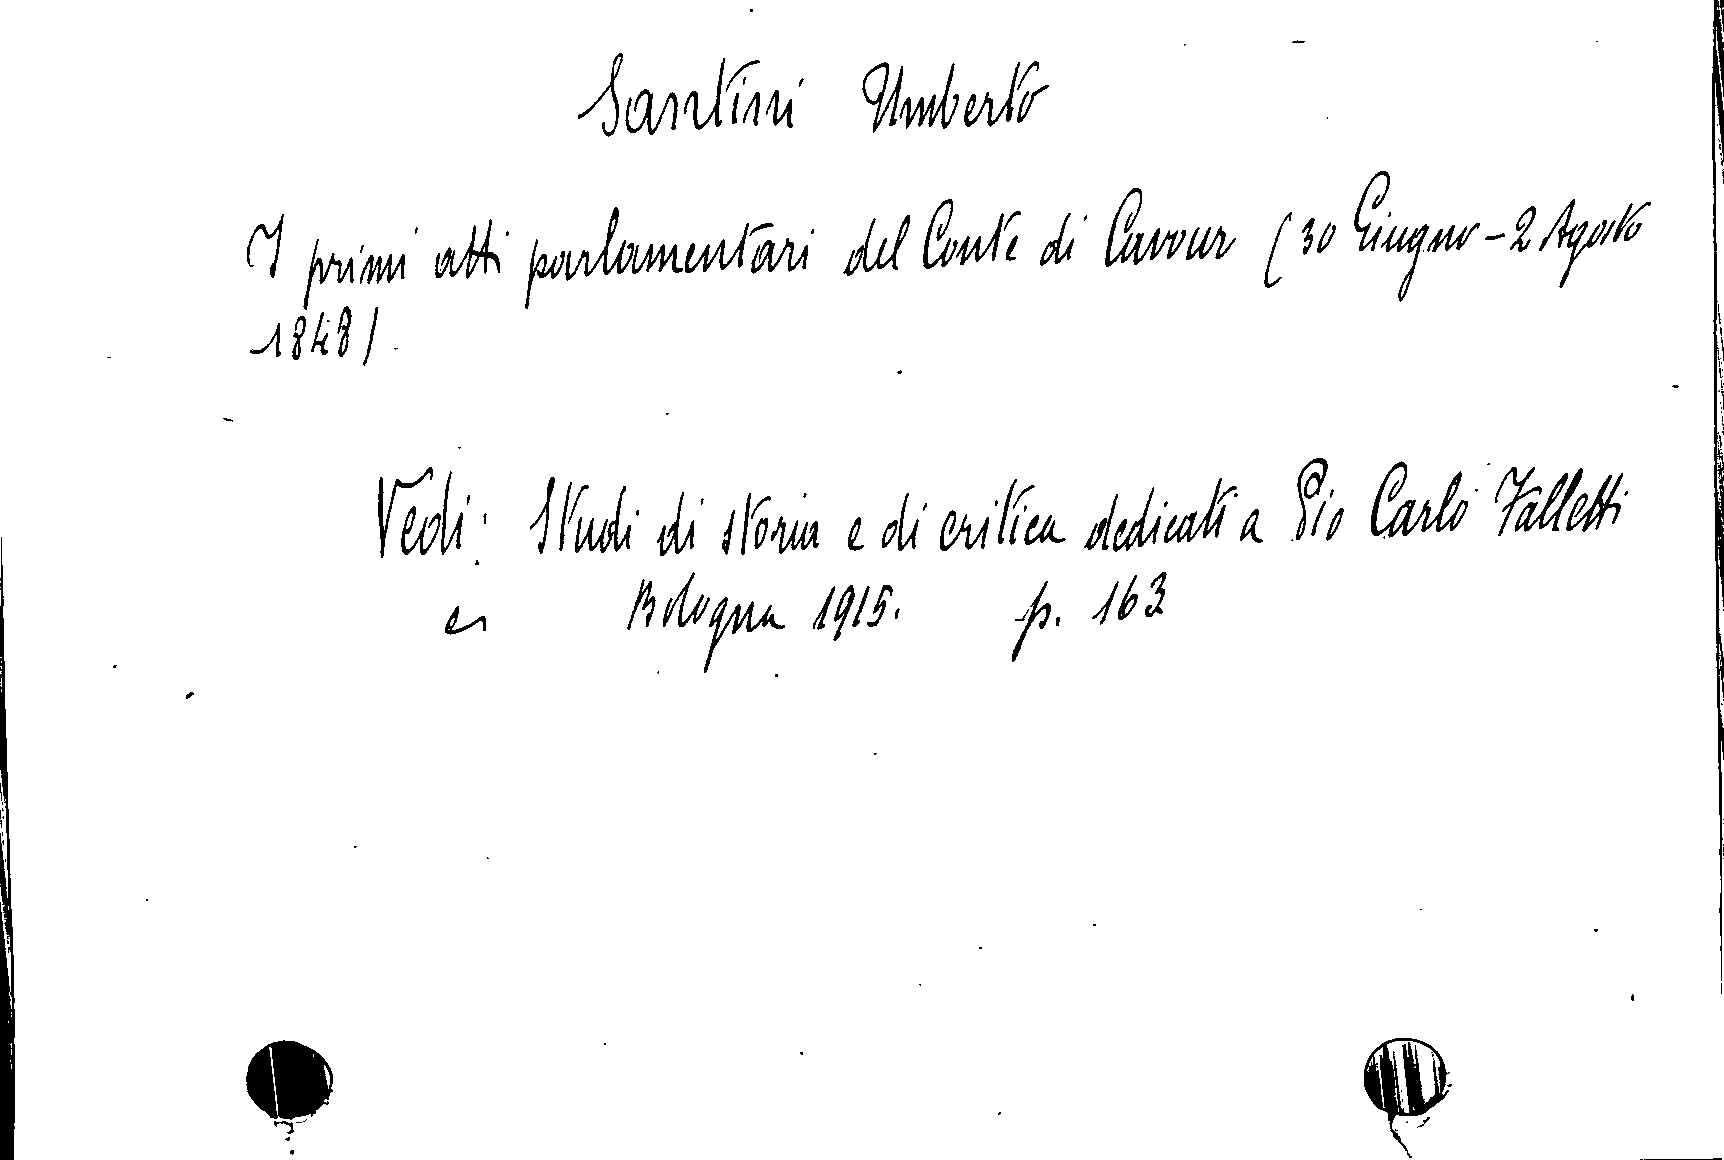 Santini Umberto
I primi atti parlamentari del Conte di Cavour (30 Giugno - 2 Agosto
1848)
Vedi: Studi di storia e di critica dedicati a Pio Carlo Falletti
Bologna 1915. p. 163